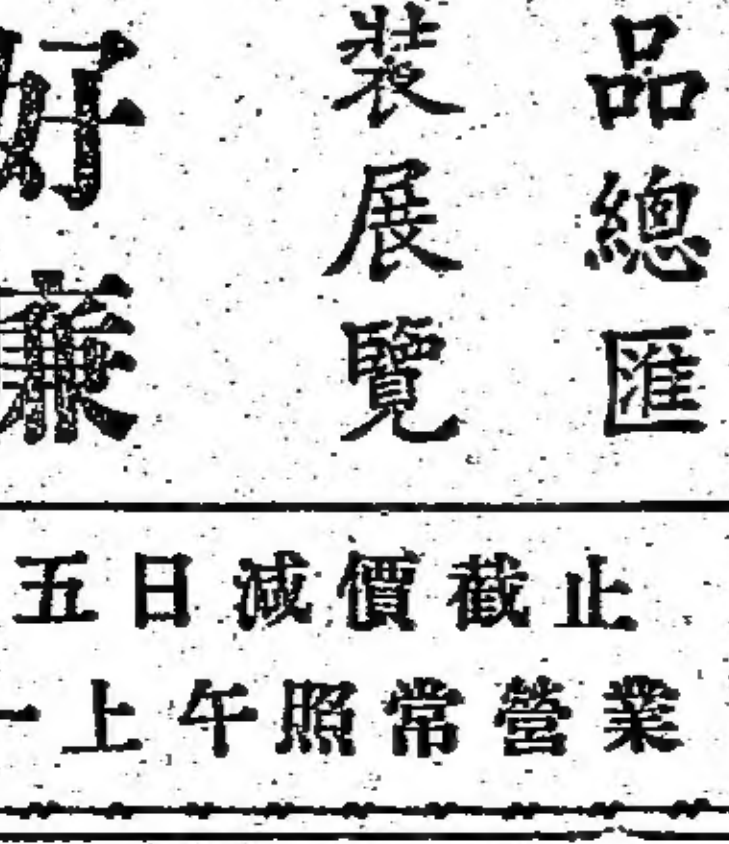 品總匯
裝展覽
好兼
五日減價截止
一上午照常營業